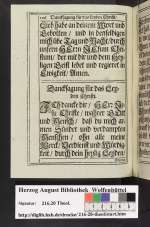 Dancksagung für das Leyden Christi.
Lieb habe an deinem Wort und
Gebotten / und in denselbigen
mich übe Tag und Nacht / durch
unsern HErrn JEsum Chri-
stum / der mit dir und dem Hey-
ligen Geist lebet und regieret in
Ewigkeit / Amen.
Dancksagung für das Ley-
den Christi.
Ich dancke dir / HErr Je-
su Christe / wahrer Gott
und Mensch / daß du mich ar-
men Sünder und verdampten
Menschen / ohn alle meine
Werck / Verdienst und Würdig-
keit / durch dein heylig Leyden /
Herzog August Bibliothek Wolfenbüttel
Signatur: 216.20 Theol.
http://diglib.hab.de/drucke/216-20-theol/start.htm